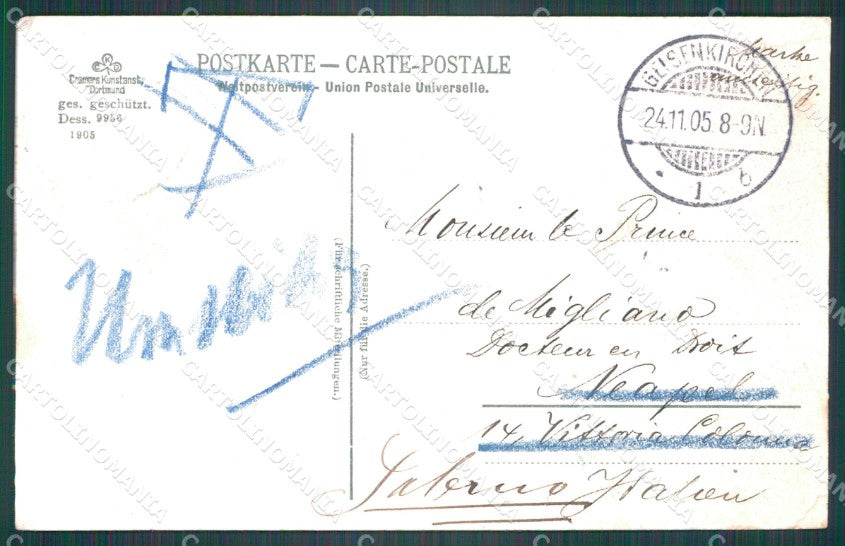 POSTKARTE — CARTE-POSTALE
Weltpostverein. - Union Postale Universelle.
Cramers Kunstanst.
Dortmund
ges. geschützt.
Dess. 9956
1905
GELSENKIRCHEN
24.11.05. 8-9N.
1 b
Marke
Umsteitig
Monsieur le Prince
de Migliano
Docteur en Droit
Neapel
14, Vittoria Colonna
Salerno Italien
(Für schriftliche Mitteilungen.)
(Nur für die Adresse.)
CARTOLINOMANIA